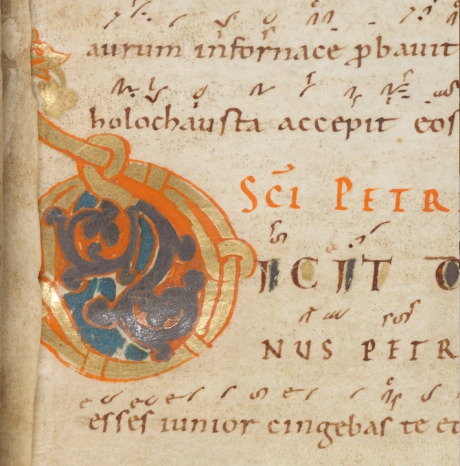 aurum in fornace ꝓbavit
holochausta accepit eos
SC̄I PETR
DICIT D
NUS PETR
esses iunior cingebas te et